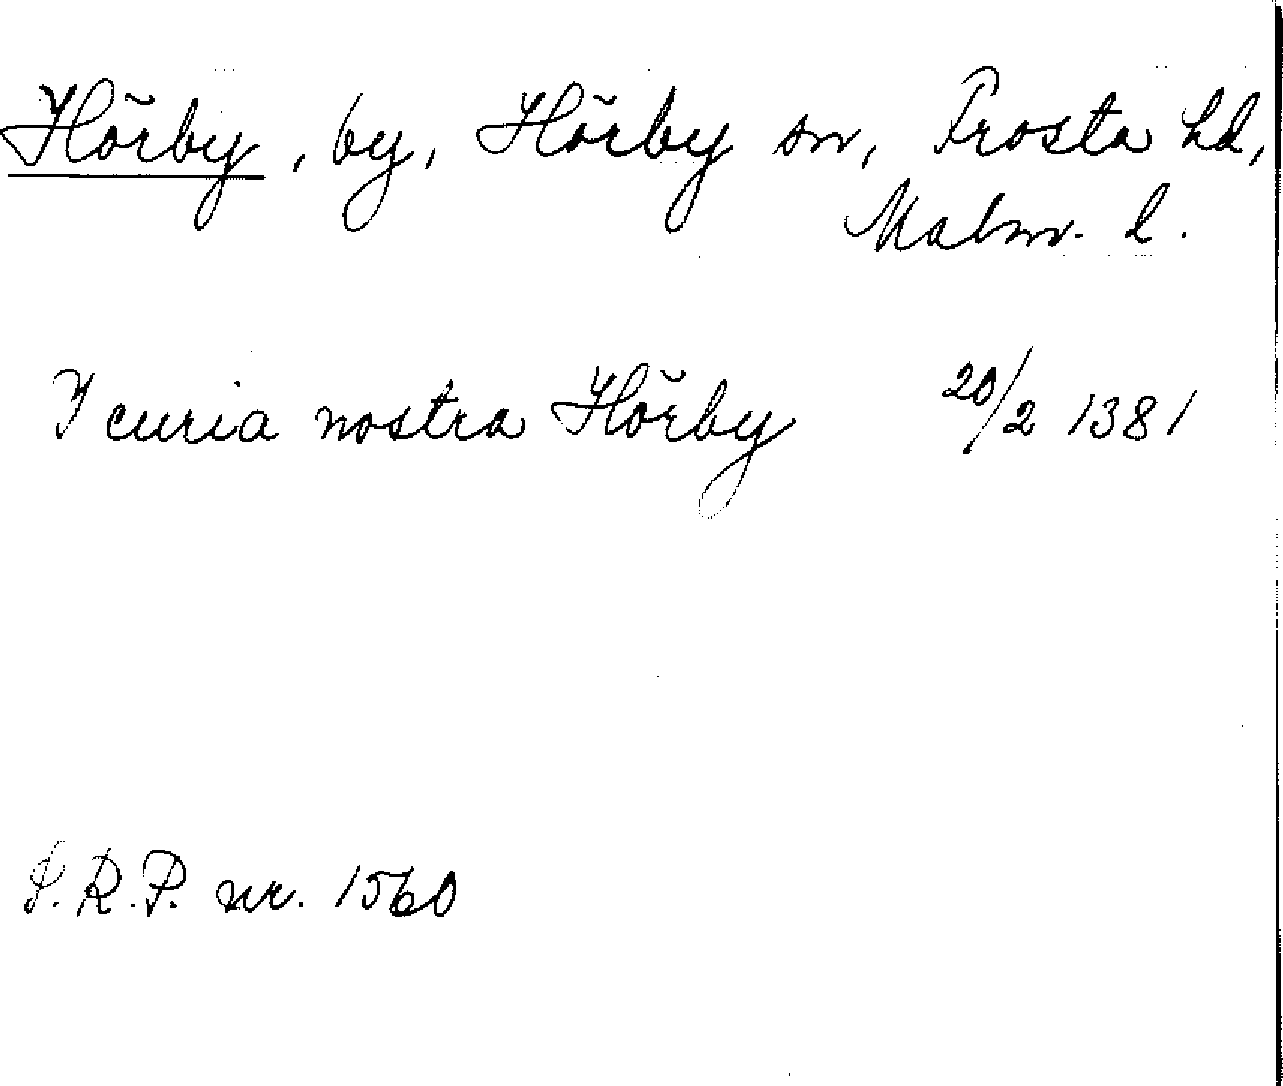 Hörby, by, Hörby sn, Frosta hd,
Malm. l.
I curia nostra Hörby 20/2 1381
S.R.P. nr. 1560